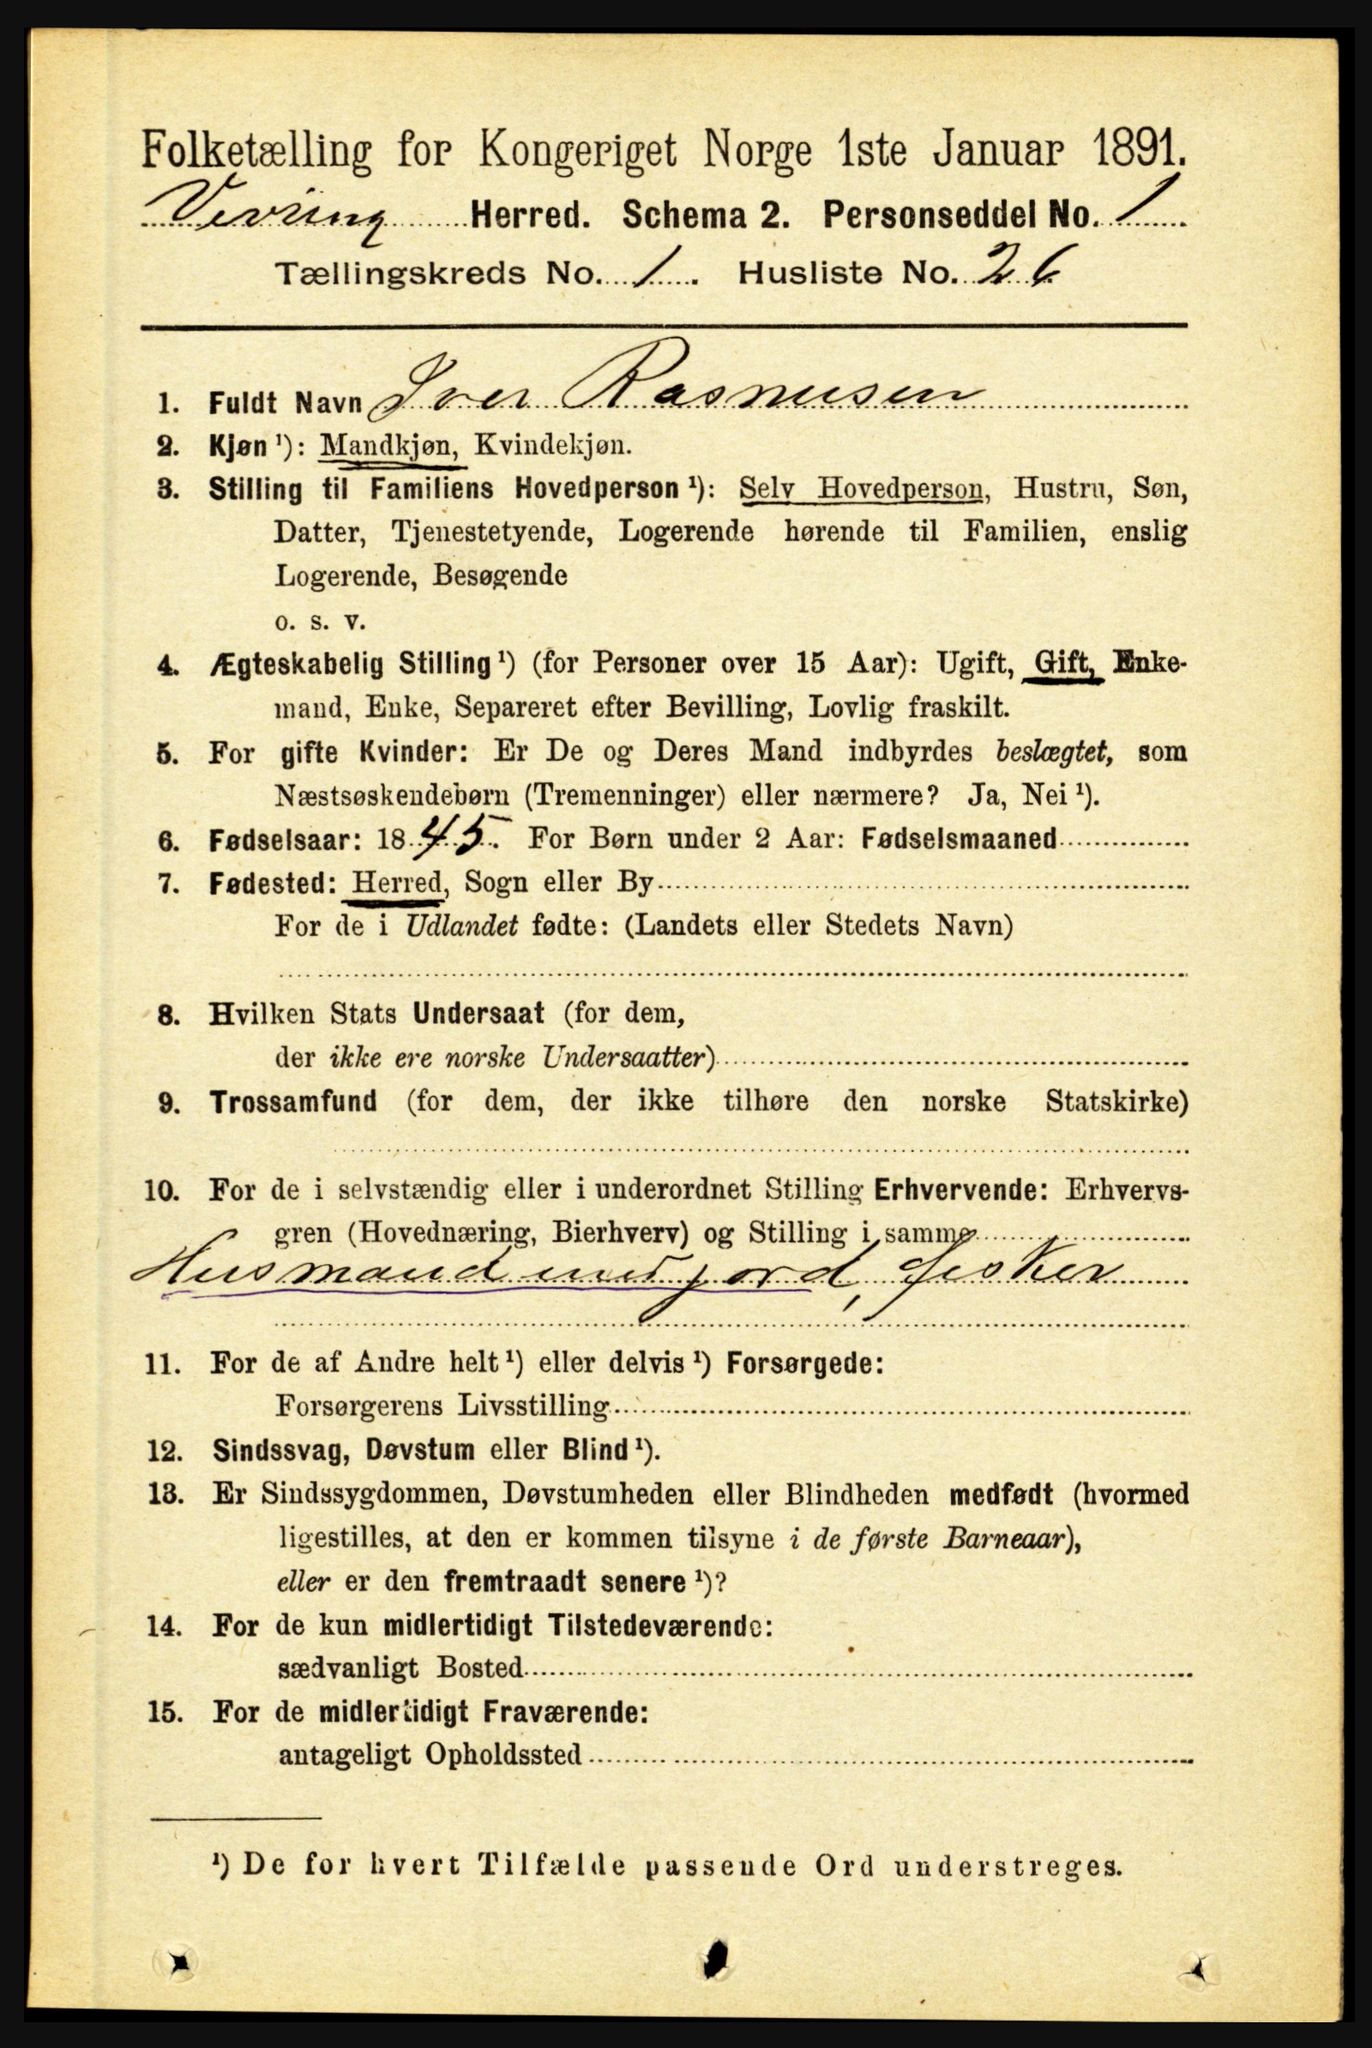 Folketælling for Kongeriget Norge 1ste Januar 1891.
Vevring Herred. Schema 2. Personseddel No. 1
Tællingskreds No. 1. Husliste No. 26
1. Fuldt Navn Iver Rasmusen
2. Kjøn ¹): Mandkjøn, Kvindekjøn.
3. Stilling til Familiens Hovedperson ¹): Selv Hovedperson, Hustru, Søn,
Datter, Tjenestetyende, Logerende hørende til Familien, enslig
Logerende, Besøgende
o. s. v.
4. Ægteskabelig Stilling ¹) (for Personer over 15 Aar): Ugift, Gift, Enke-
mand, Enke, Separeret efter Bevilling, Lovlig fraskilt.
5. For gifte Kvinder: Er De og Deres Mand indbyrdes beslægtet, som
Næstsøskendebørn (Tremenninger) eller nærmere? Ja, Nei ¹).
6. Fødselsaar: 1845. For Børn under 2 Aar: Fødselsmaaned
7. Fødested: Herred, Sogn eller By
For de i Udlandet fødte: (Landets eller Stedets Navn)
8. Hvilken Stats Undersaat (for dem,
der ikke ere norske Undersaatter)
9. Trossamfund (for dem, der ikke tilhøre den norske Statskirke)
10. For de i selvstændig eller i underordnet Stilling Erhvervende: Erhvervs-
gren (Hovednæring, Bierhverv) og Stilling i samme
Husmand med jord, fisker
11. For de af Andre helt ¹) eller delvis ¹) Forsørgede:
Forsørgerens Livsstilling
12. Sindssvag, Døvstum eller Blind ¹).
13. Er Sindssygdommen, Døvstumheden eller Blindheden medfødt (hvormed
ligestilles, at den er kommen tilsyne i de første Barneaar),
eller er den fremtraadt senere ¹)?
14. For de kun midlertidigt Tilstedeværende:
sædvanligt Bosted
15. For de midlertidigt Fraværende:
antageligt Opholdssted
¹) De for hvert Tilfælde passende Ord understreges.